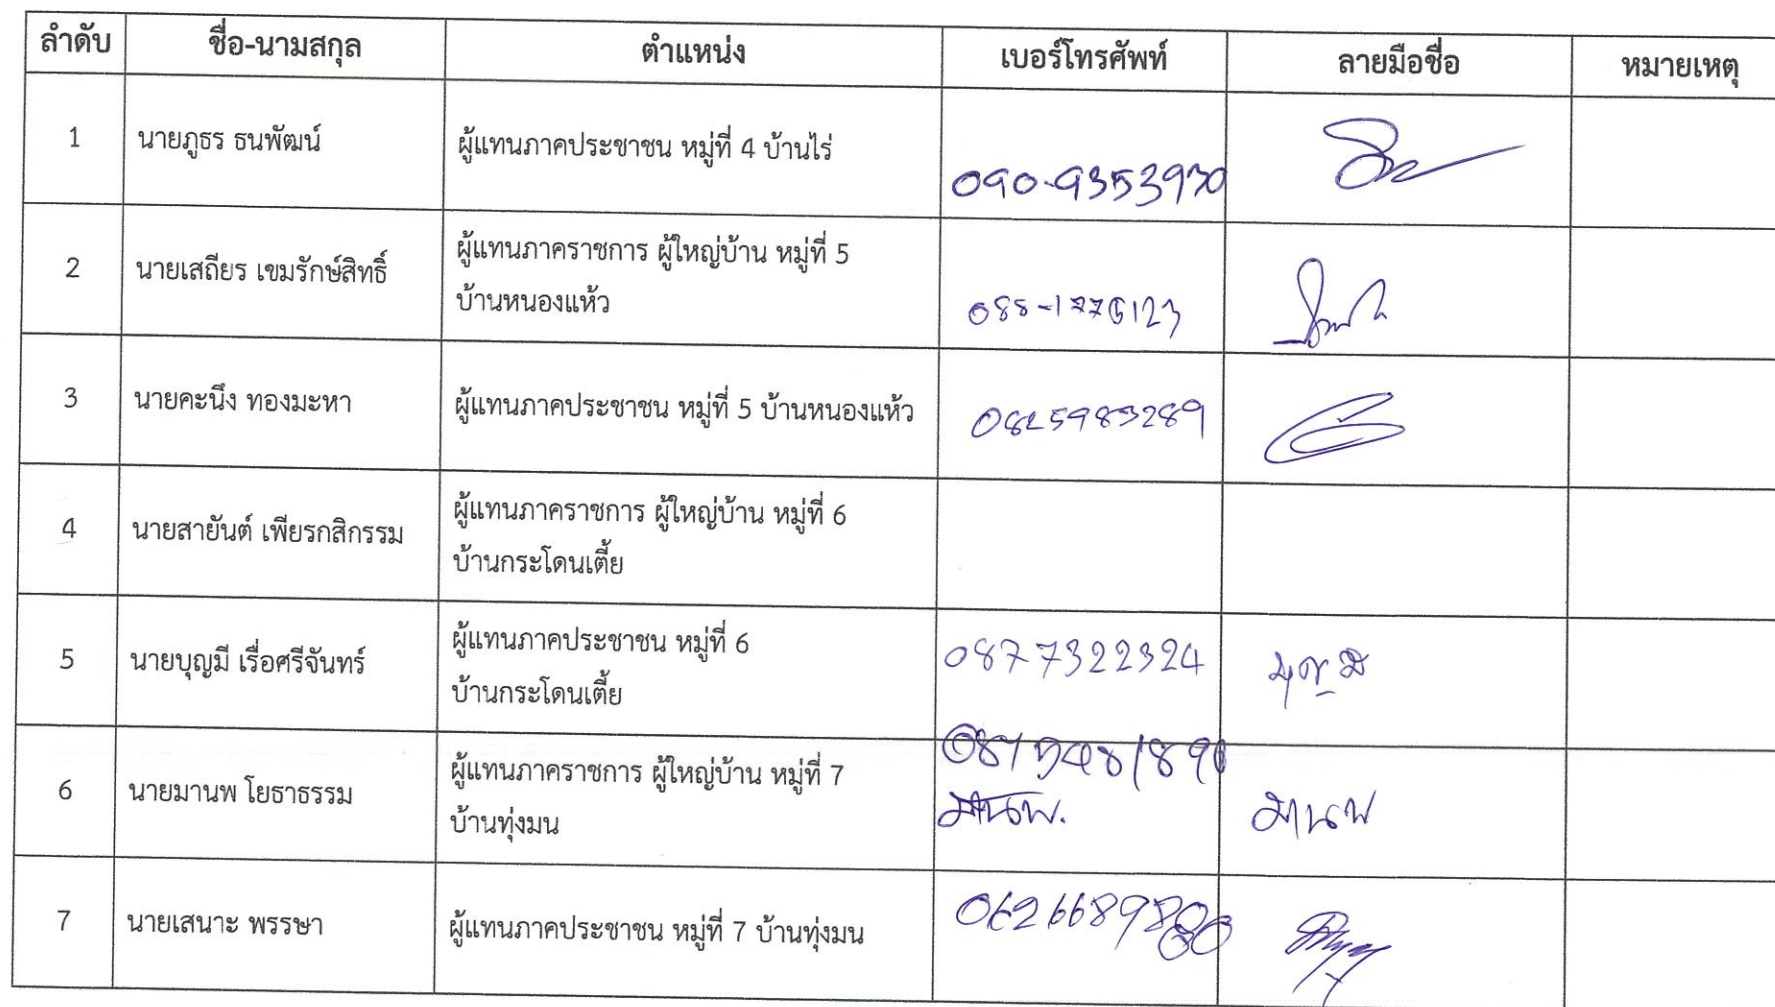 ลำดับ ชื่อ-นามสกุล ตำแหน่ง เบอร์โทรศัพท์ ลายมือชื่อ หมายเหตุ
1 นายภูธร ธนพัฒน์ ผู้แทนภาคประชาชน หมู่ที่ 4 บ้านไร่ 090-9353930
2 นายเสถียร เขมรักษ์สิทธิ์ ผู้แทนภาคราชการ ผู้ใหญ่บ้าน หมู่ที่ 5
บ้านหนองแห้ว 088-1776123
3 นายคะนึง ทองมะหา ผู้แทนภาคประชาชน หมู่ที่ 5 บ้านหนองแห้ว
4 นายสายันต์ เพียรกสิกรรม ผู้แทนภาคราชการ ผู้ใหญ่บ้าน หมู่ที่ 6
บ้านกระโดนเตี้ย
5 นายบุญมี เรื่อศรีจันทร์ ผู้แทนภาคประชาชน หมู่ที่ 6 0877322324 บุญมี
บ้านกระโดนเตี้ย
6 นายมานพ โยธาธรรม ผู้แทนภาคราชการ ผู้ใหญ่บ้าน หมู่ที่ 7
บ้านทุ่งมน มานพ. มานพ
7 นายเสนาะ พรรษา ผู้แทนภาคประชาชน หมู่ที่ 7 บ้านทุ่งมน